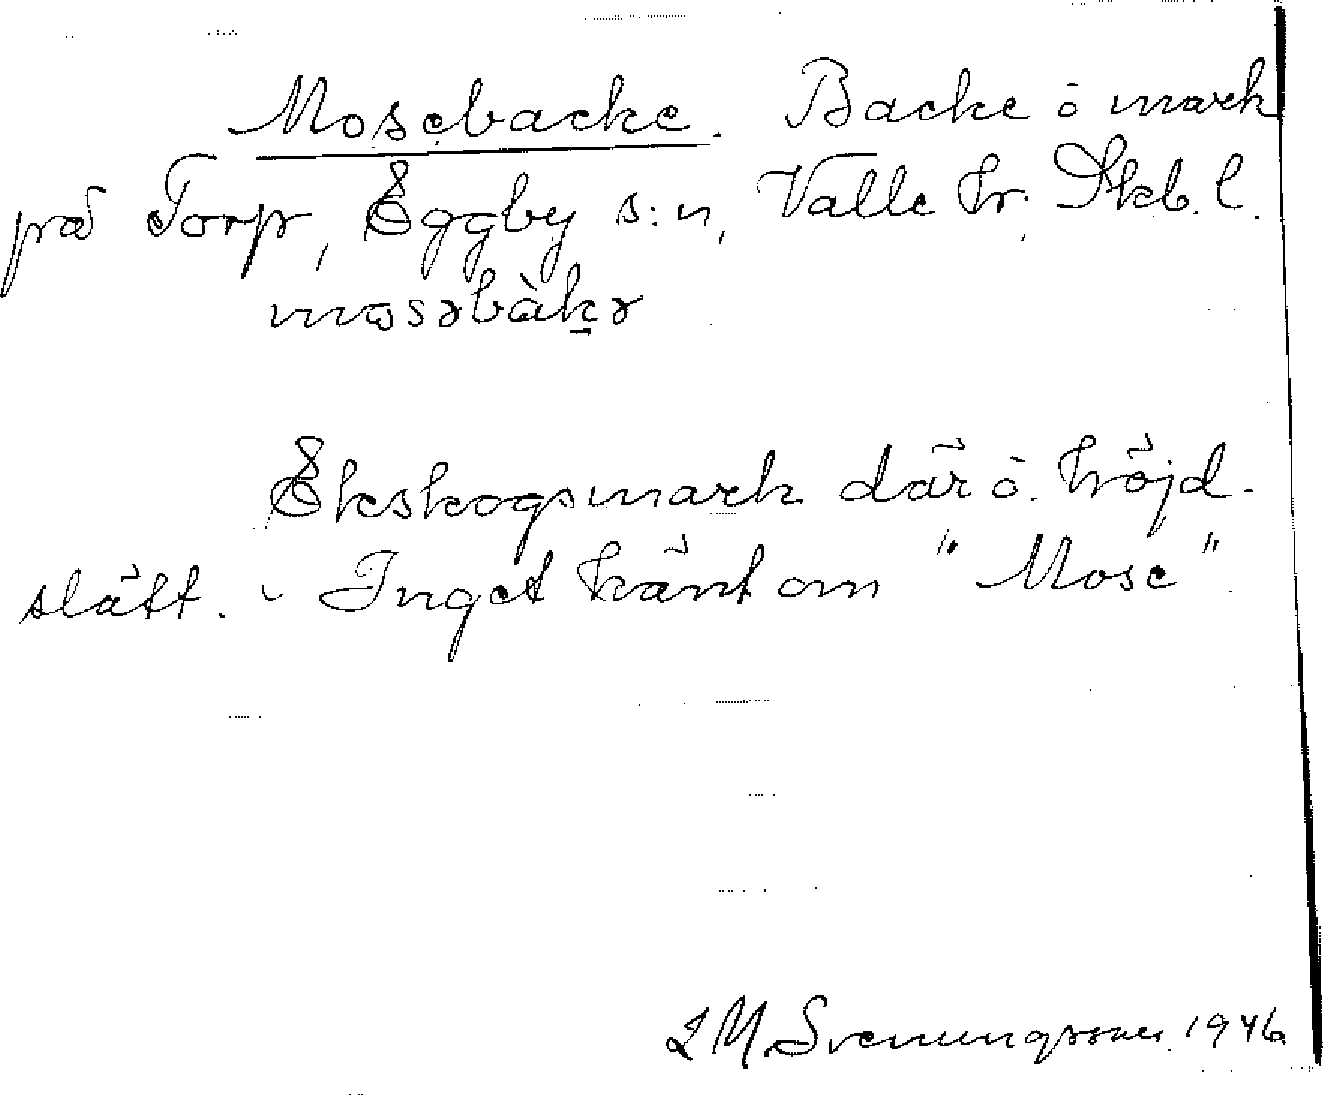 Mosebacke. Backe o mark
på Torp, Eggby s:n, Valle hr. Skb. l.
mosəbàkə
Ekskogsmark där o. höjd-
slätt. - Inget känt om "Mose"
L M. Svenungsson 1946